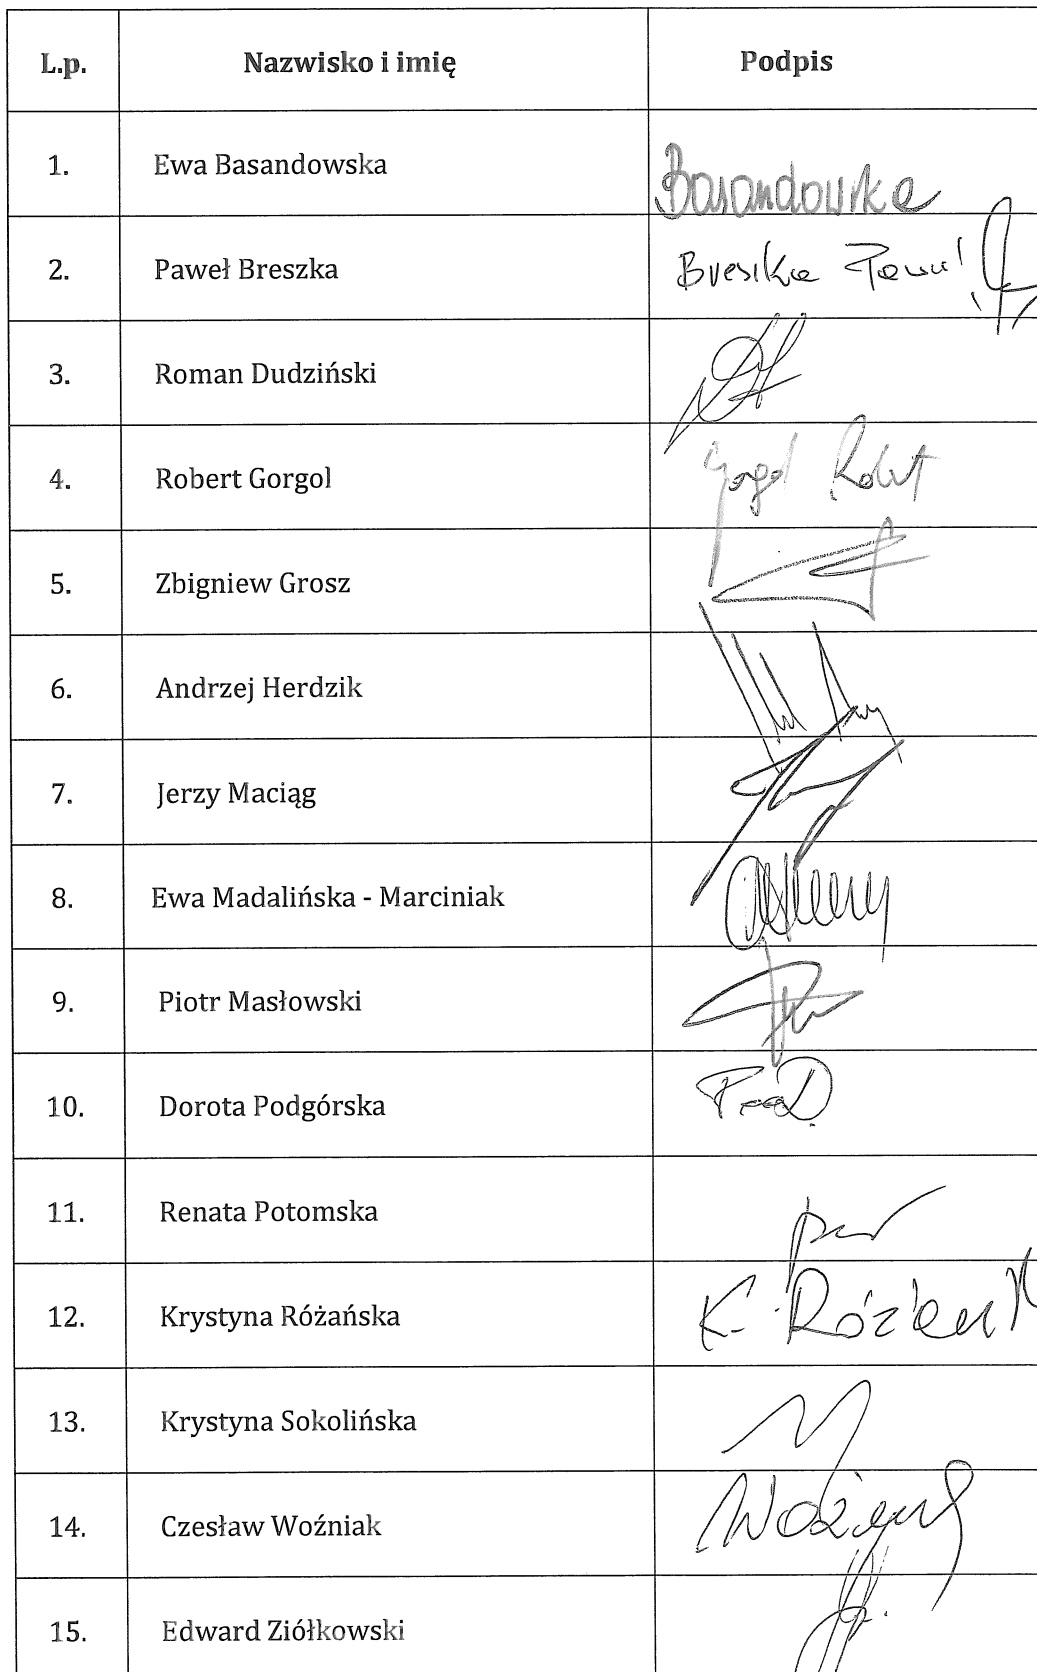 L.p. Nazwisko i imię Podpis
1. Ewa Basandowska Basandowska
2. Paweł Breszka Breszka Paweł
3. Roman Dudziński
4. Robert Gorgol Gorgol Robert
5. Zbigniew Grosz
6. Andrzej Herdzik
7. Jerzy Maciąg
8. Ewa Madalińska - Marciniak
9. Piotr Masłowski
10. Dorota Podgórska
11. Renata Potomska
12. Krystyna Różańska K.
13. Krystyna Sokolińska
14. Czesław Woźniak
15. Edward Ziółkowski